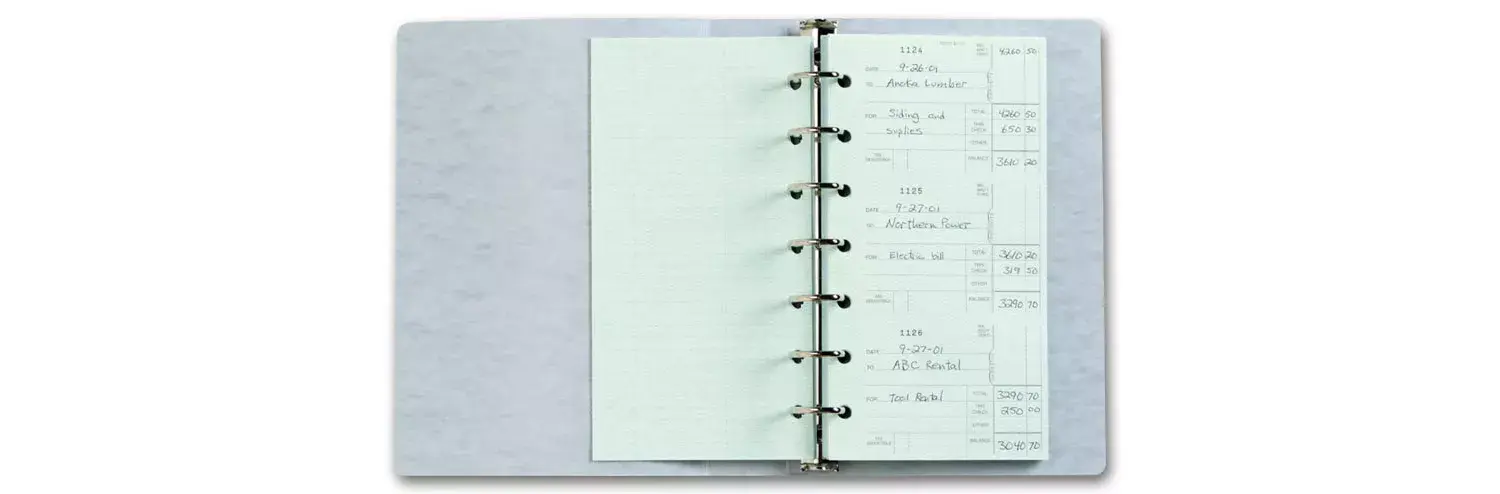 1124
4260 50
DATE 9-26-01
TO Anoka Lumber
FOR Siding and TOTAL 4260 50
suplies THIS CHECK 650 30
OTHER
TAX DEDUCTIBLE BALANCE 3610 20
1125
DATE 9-27-01
TO Northern Power
FOR Electric bill TOTAL 3610 20
THIS CHECK 319 50
OTHER
TAX DEDUCTIBLE BALANCE 3290 70
1126
DATE 9-27-01
TO ABC Rental
FOR Tool Rental TOTAL 3290 70
THIS CHECK 250 00
OTHER
TAX DEDUCTIBLE BALANCE 3040 70